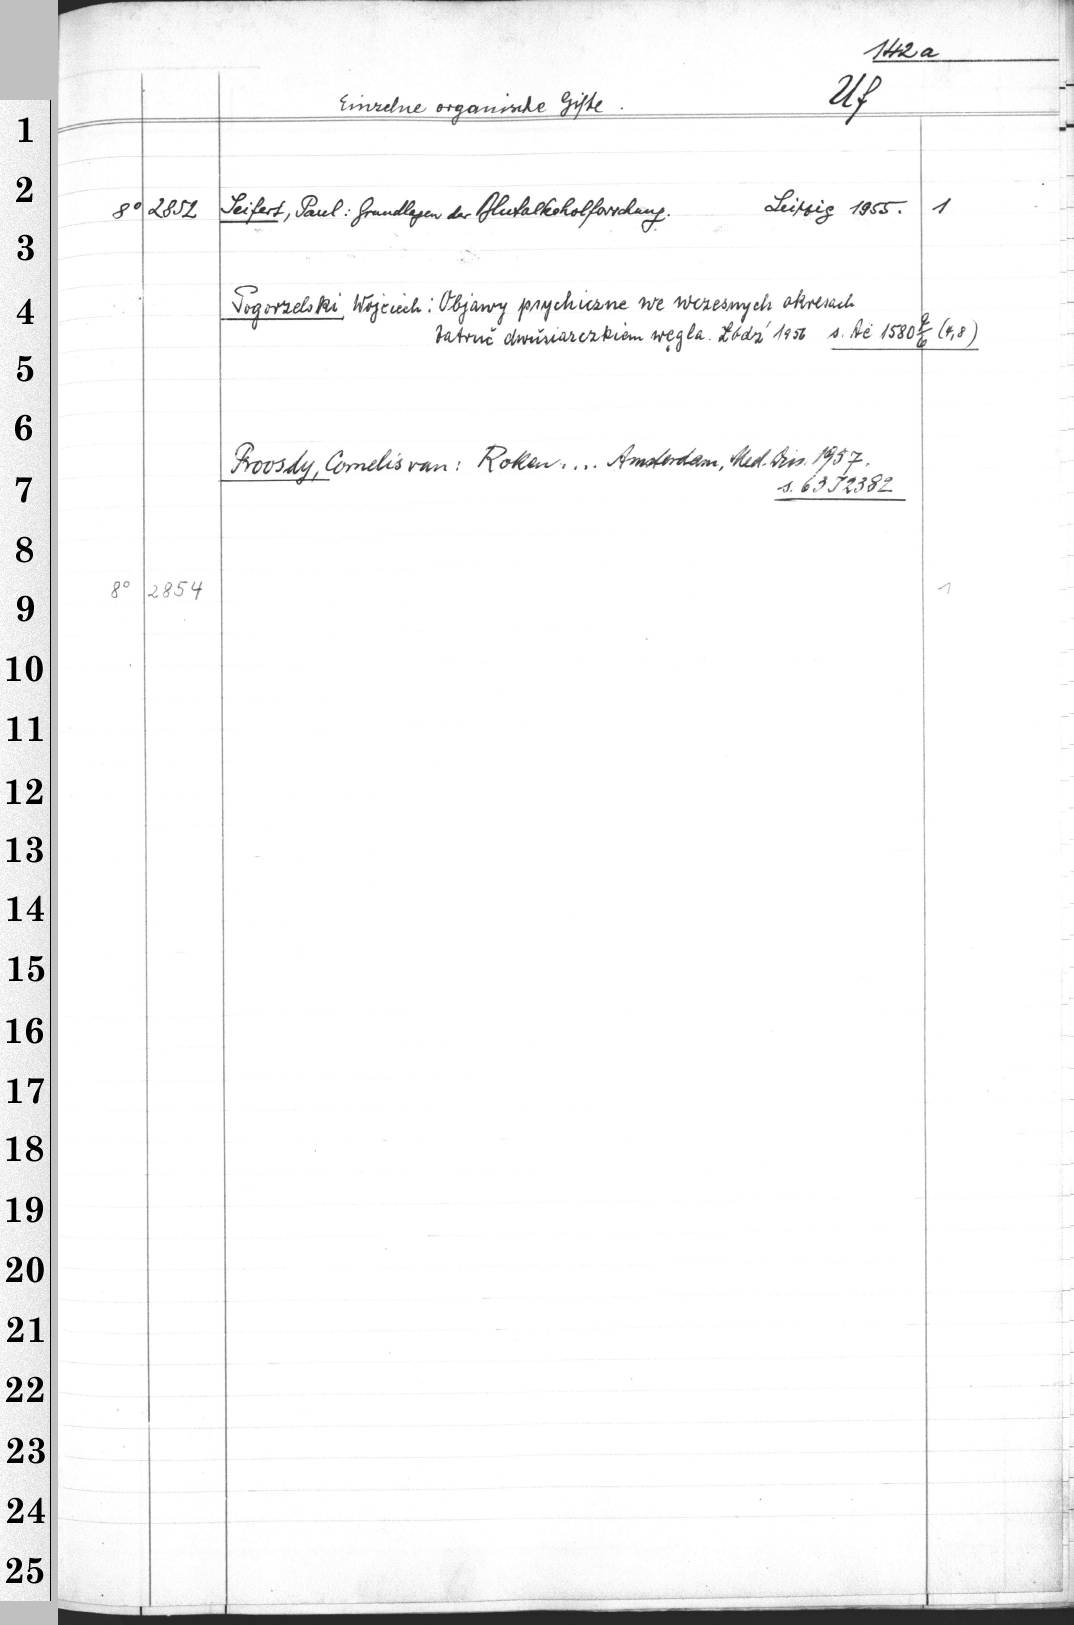 142a
Uf
Einzelne organische Gifte.
8° 2852 Seifert, Paul: Grundlagen der Blutalkoholforschung. Leipzig 1955. 1
Pogorzelski, Wojciech: Objawy psychiczne we wczesnych okresach
zatruć dwusiarczkiem węgla. Łódź 1956 s. Ac 1580 (4,8)
Proosdy, Cornelis van: Roken.... Amsterdam, Med. 1957.
s. 63 J 2382
8° 2854 1
1
2
3
4
5
6
7
8
9
10
11
12
13
14
15
16
17
18
19
20
21
22
23
24
25